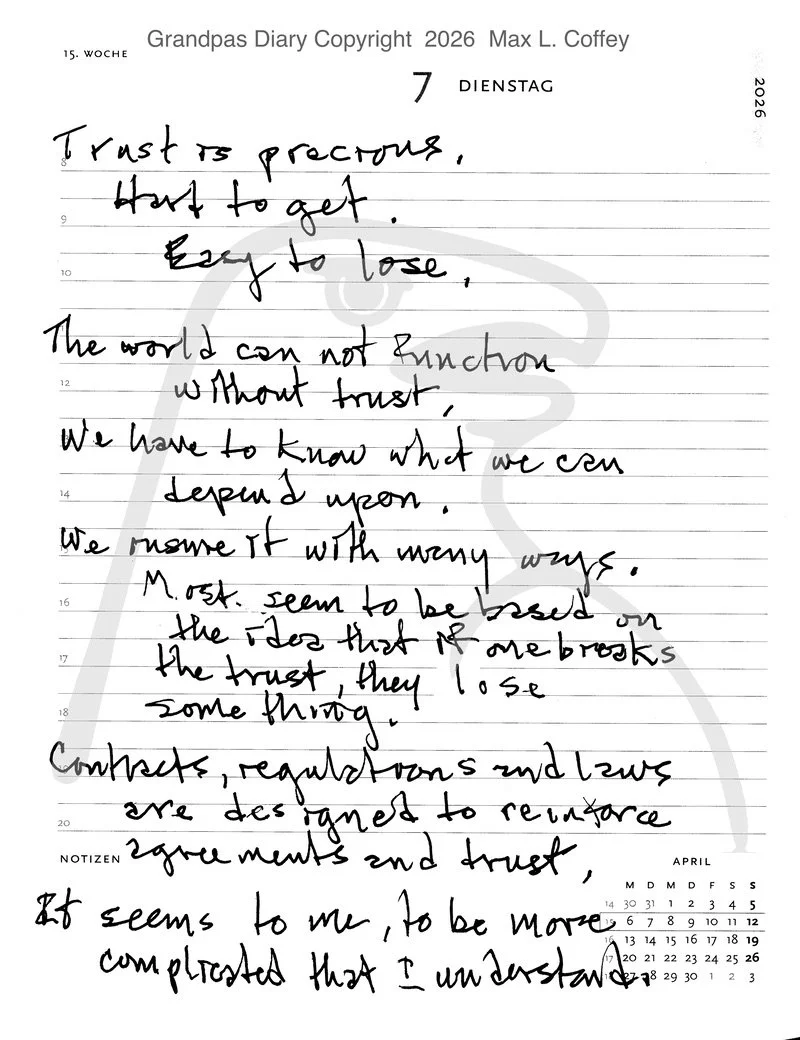 Grandpas Diary Copyright 2026 Max L. Coffey
15. WOCHE
7 DIENSTAG
2026
Trust is precious.
8
Hart to get.
9
Easy to lose,
10
The world can not function
12
without trust,
We have to know what we can
14
depend upon.
We insure it with many ways.
Most. seem to be based on
16
the idea that if one breaks
17
the trust, they lose
18
some thing.
Contracts, regulations and laws
are designed to reinforce
20
NOTIZEN
agreements and trust,
APRIL
M D M D F S S
14 30 31 1 2 3 4 5
It seems to me, to be more
15 6 7 8 9 10 11 12
16 13 14 15 16 17 18 19
complicated that I understand.
17 20 21 22 23 24 25 26
18 27 28 29 30 1 2 3